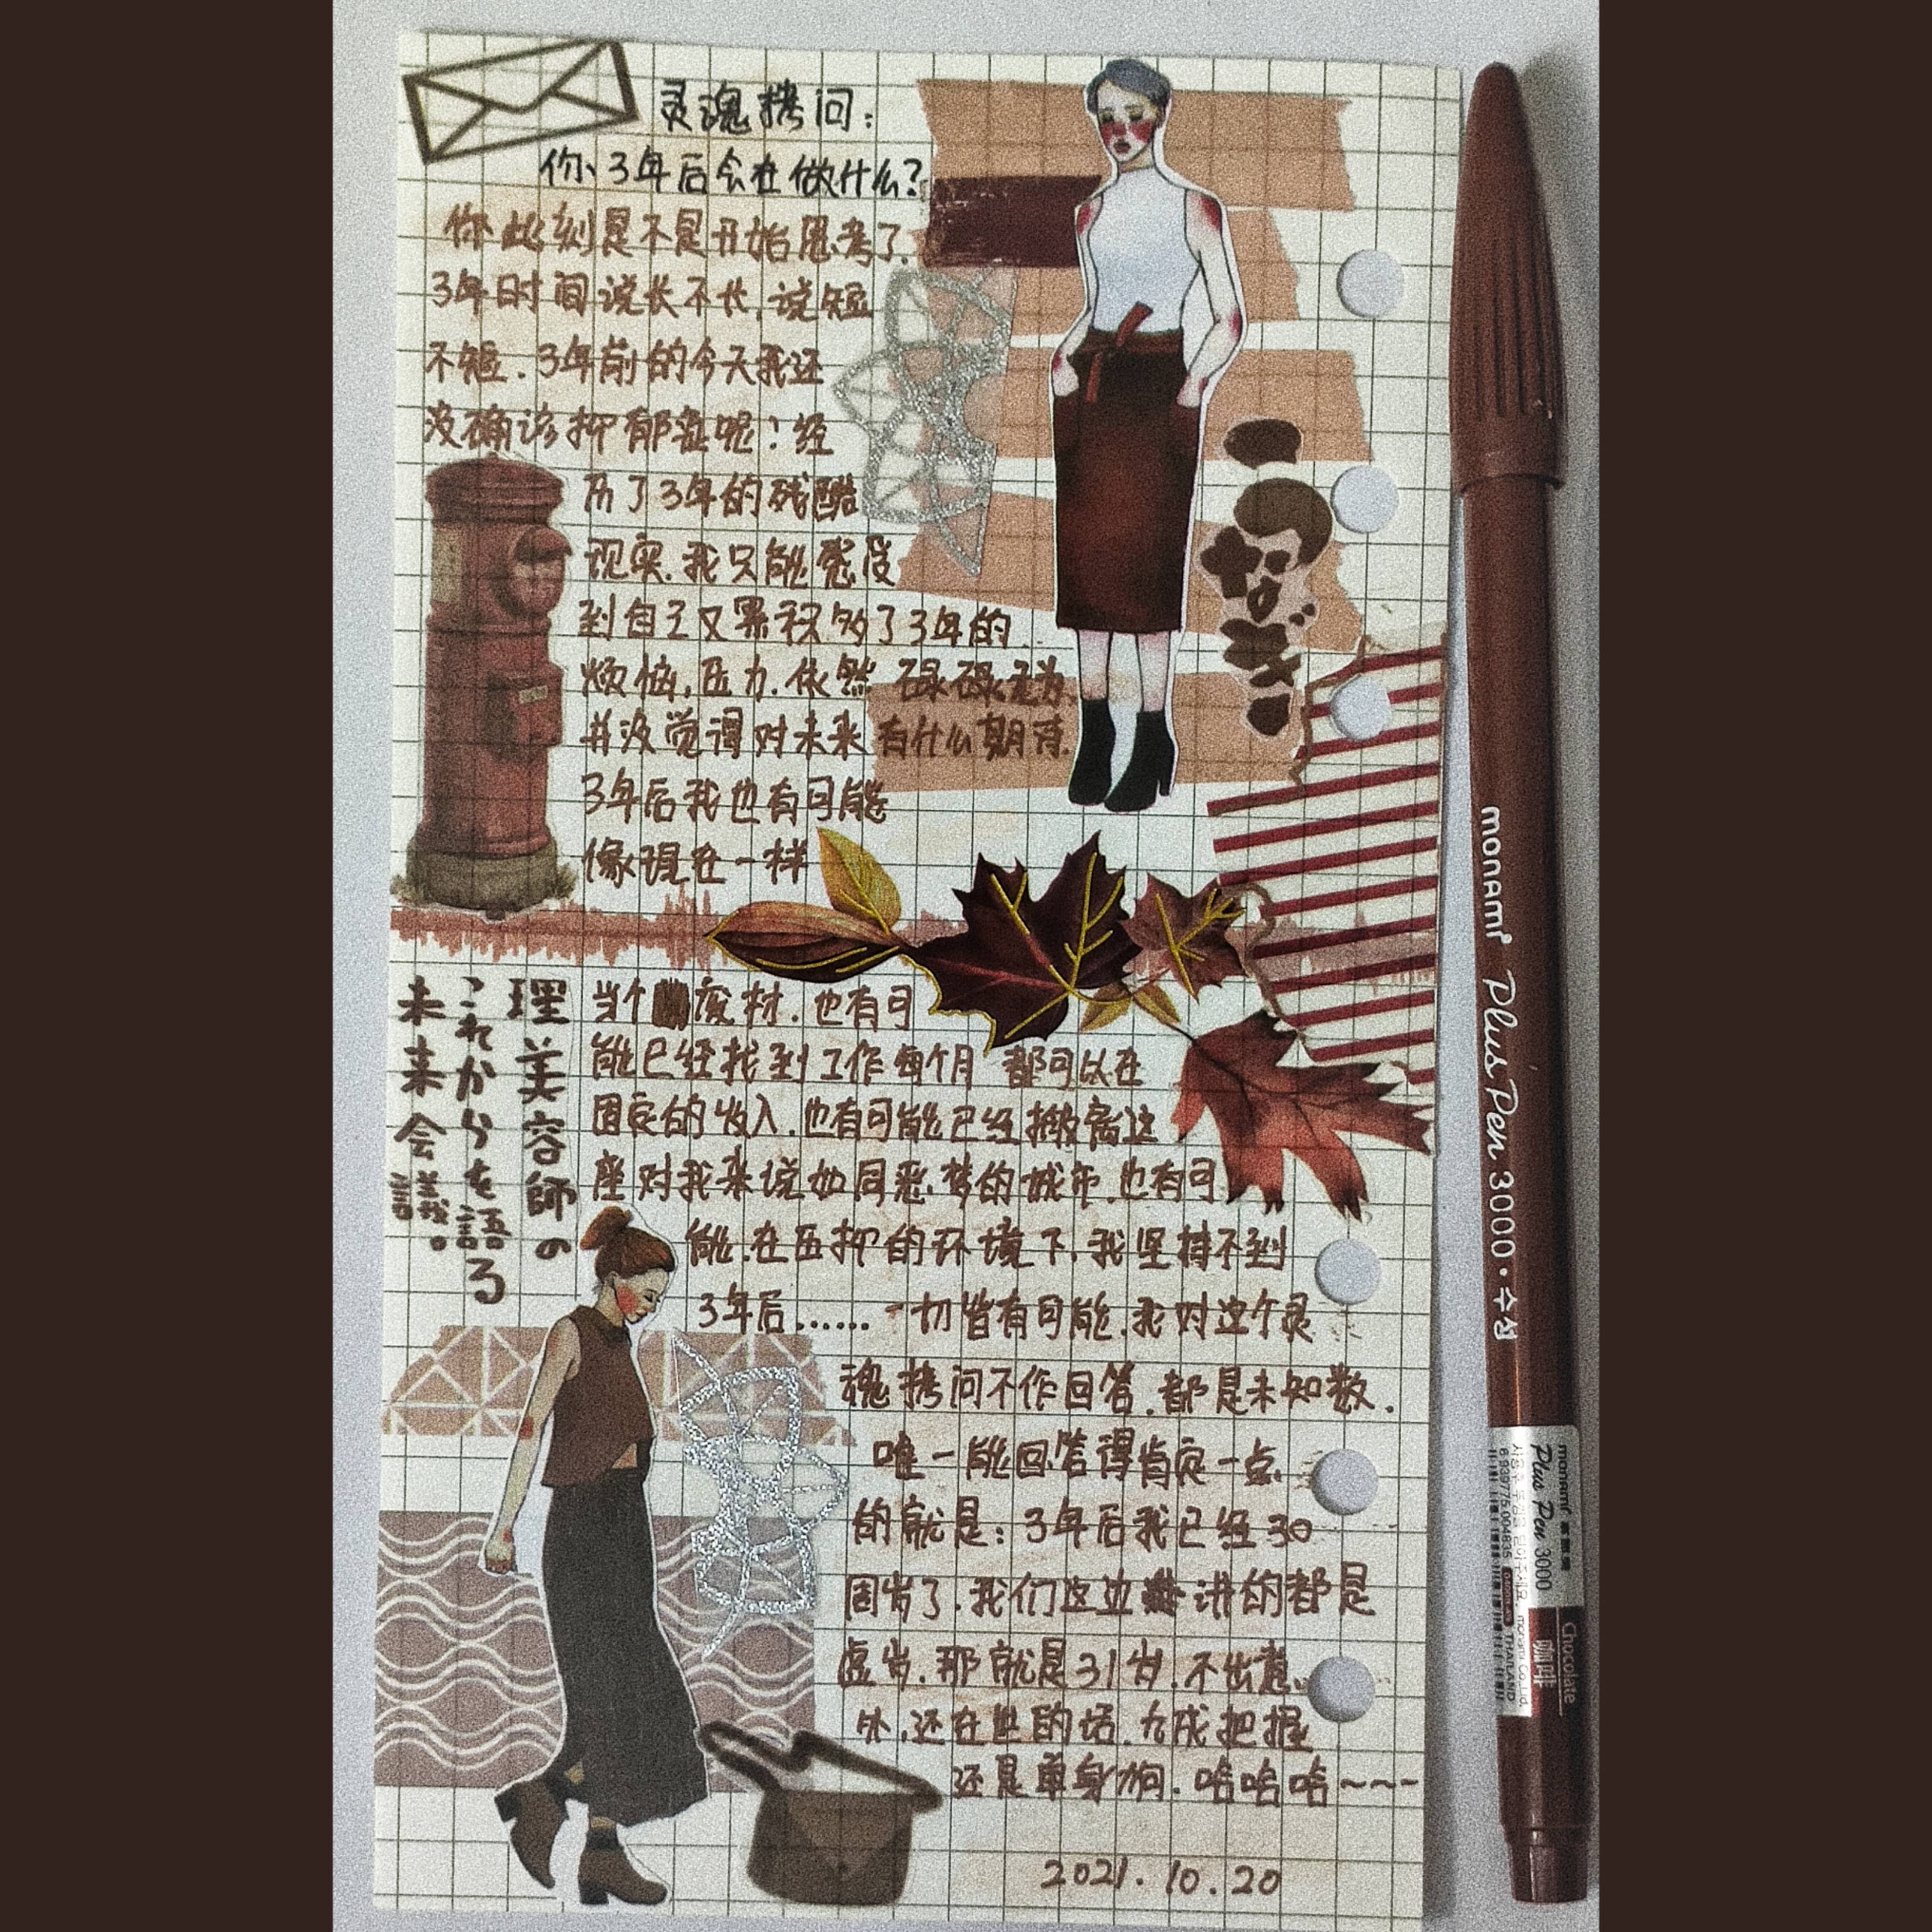 灵魂拷问：
你3年后会在做什么？
你此刻是不是开始思考了.
3年时间说长不长，说短
不短.3年前的今天我还
没确诊抑郁症呢！经
历了3年的残酷
现实.我只能感受
到自己又累积多了3年的
烦恼，压力.依然碌碌无为.
并没觉得对未来有什么期待.
3年后我也有可能
像现在一样
当个废材.也有可
能已经找到工作每个月都可以在
固定的收入.也有可能已经搬离这
座对我来说如同恶梦的城市.也有可
能.在压抑的环境下.我坚持不到
3年后……一切皆有可能.我对这个灵
魂拷问不作回答.都是未知数.
唯一能回答得肯定一点
的就是：3年后我已经30
周岁了.我们这边讲的都是
虚岁.那就是31岁.不出意
外.还在世的话.九成把握
还是单身狗.哈哈哈~~~
2021.10.20
理美容師の
これからを語る
未来会議。
monAmi Plus Pen 3000·수성
monami
Plus Pen 3000
Chocolate
咖啡
monami Co., Ltd.
THAILAND
6 939775 004835